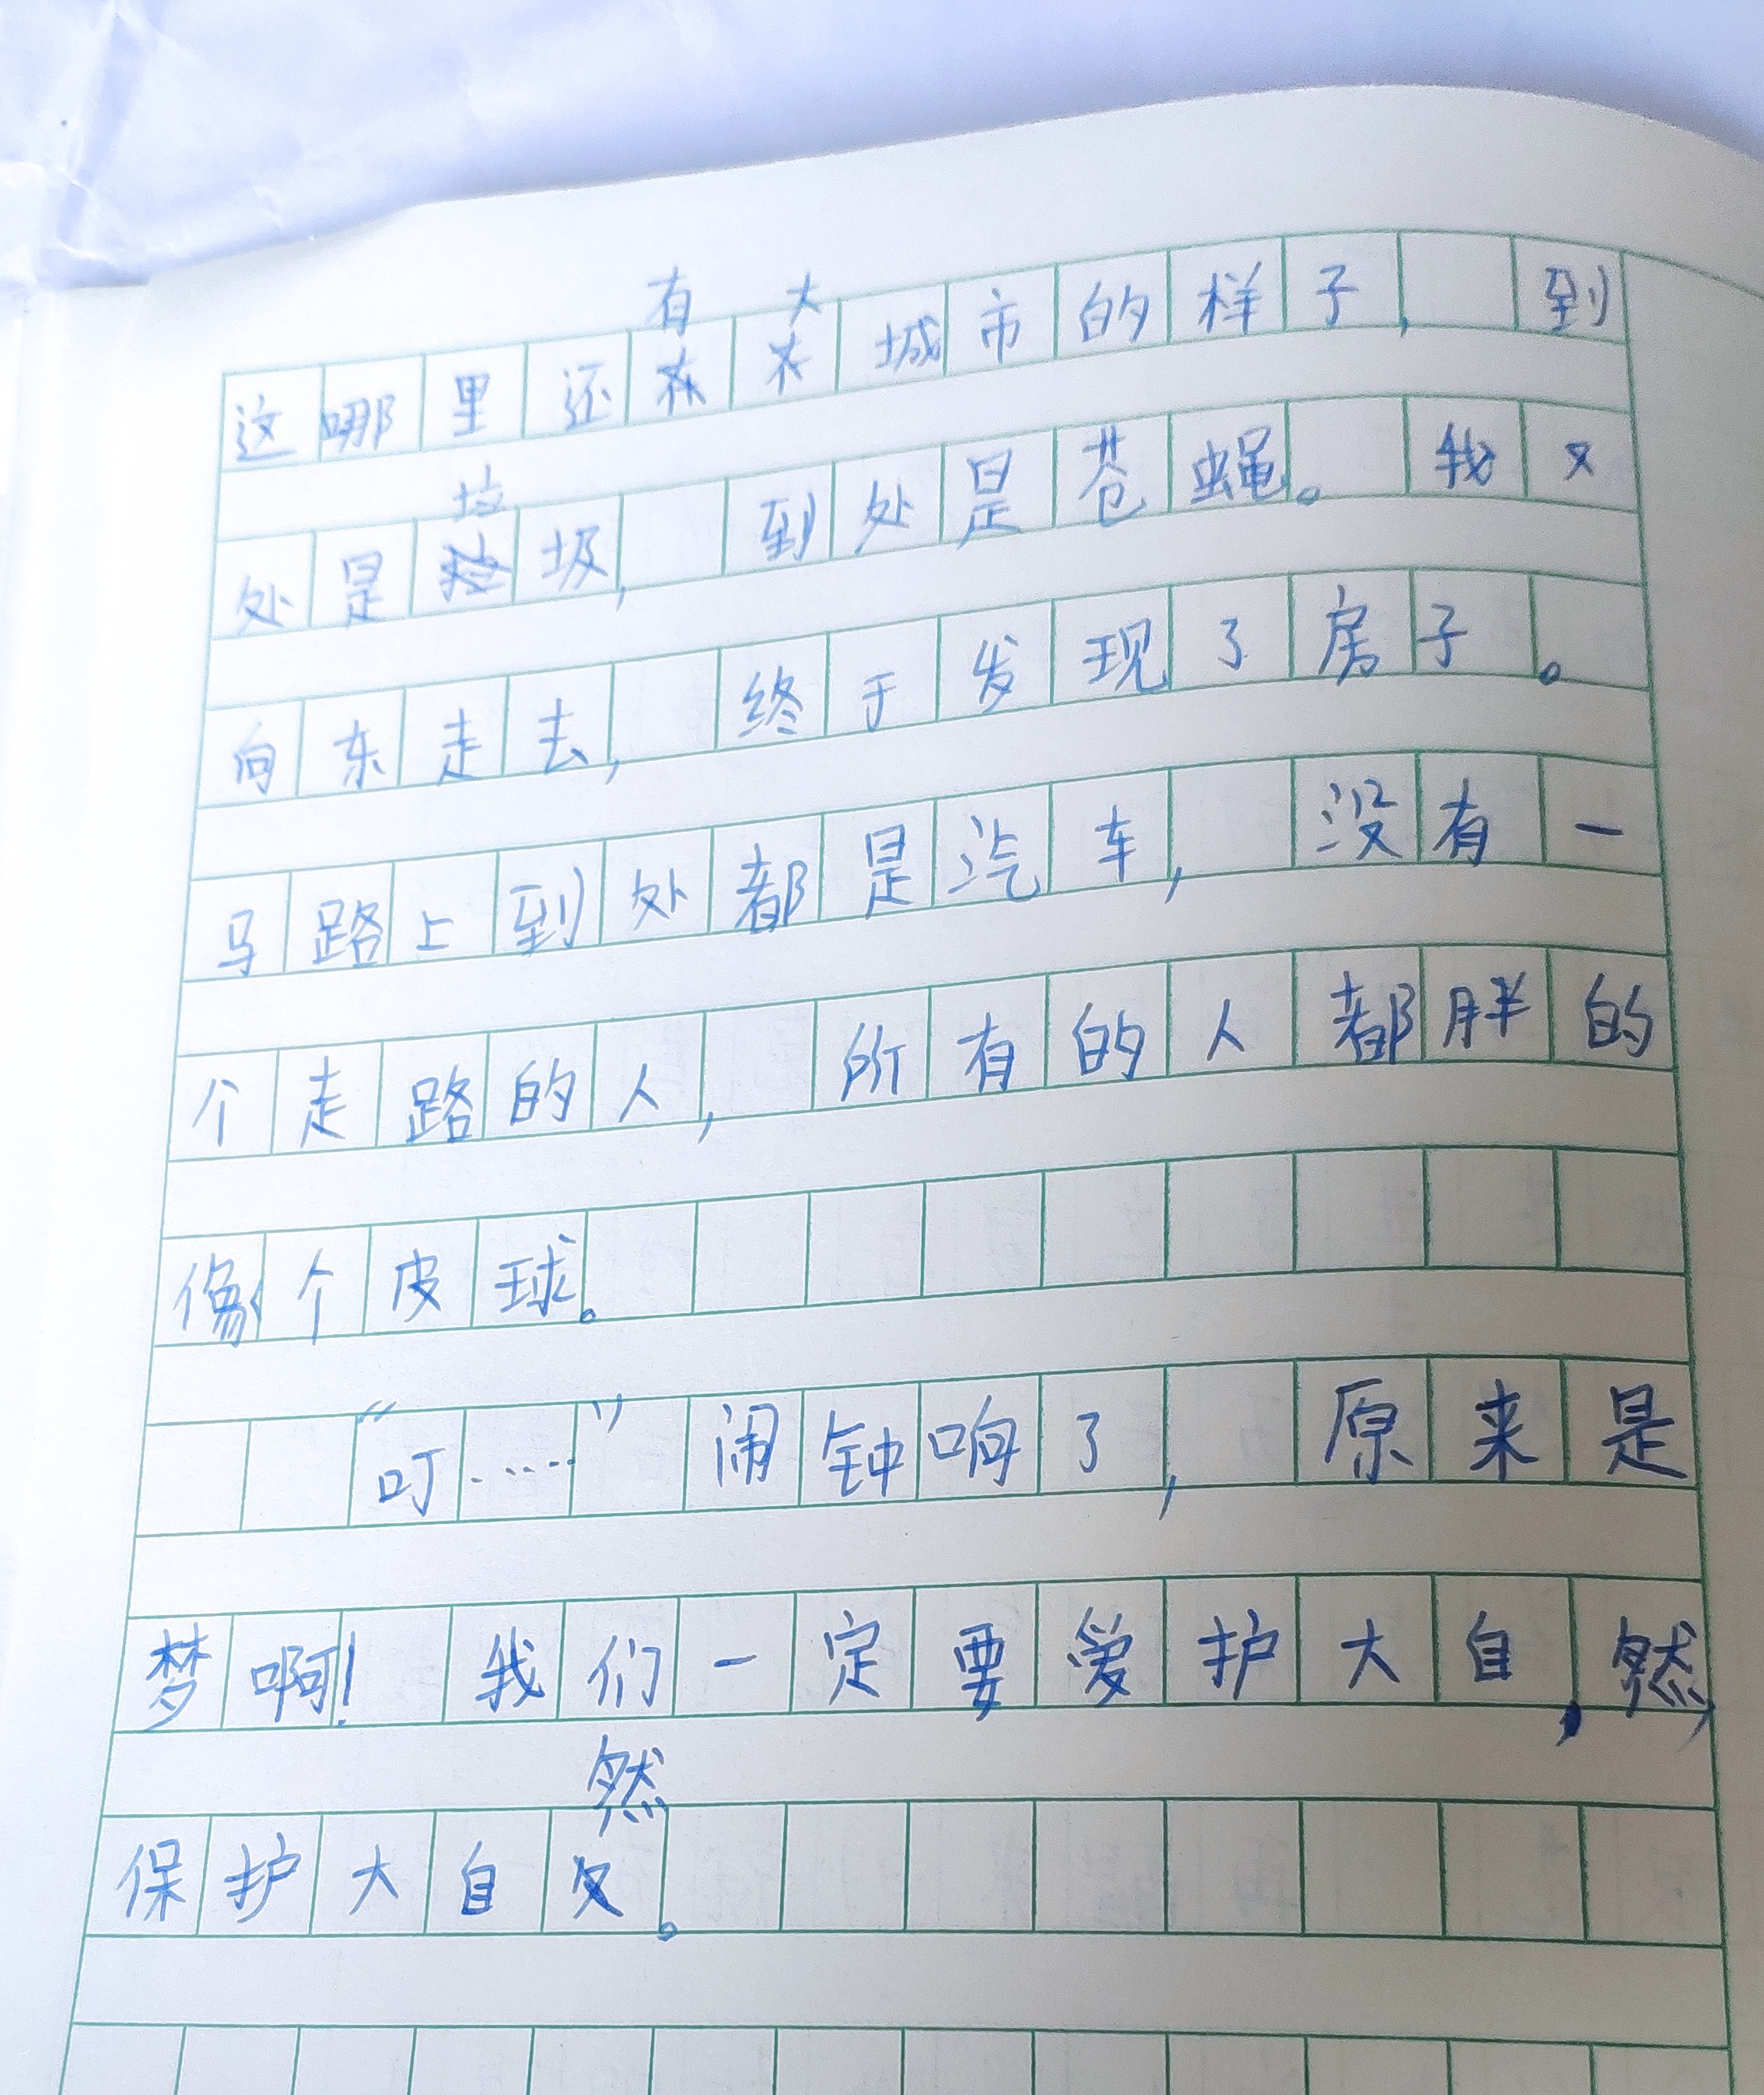 这哪里还有大城市的样子，到
处是垃圾，到处是苍蝇。我又
向东走去，终于发现了房子。
马路上到处都是汽车，没有一
个走路的人，所有的人都胖的
像个皮球。
“叮……”闹钟响了，原来是
梦啊！我们一定要爱护大自然，
保护大自然。